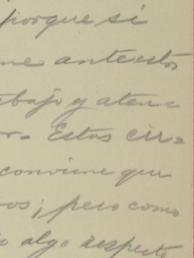 porque si
me ante estos
abajo y aten=
r. Estas cir=
conviene que
os; pero como
o algo respecte